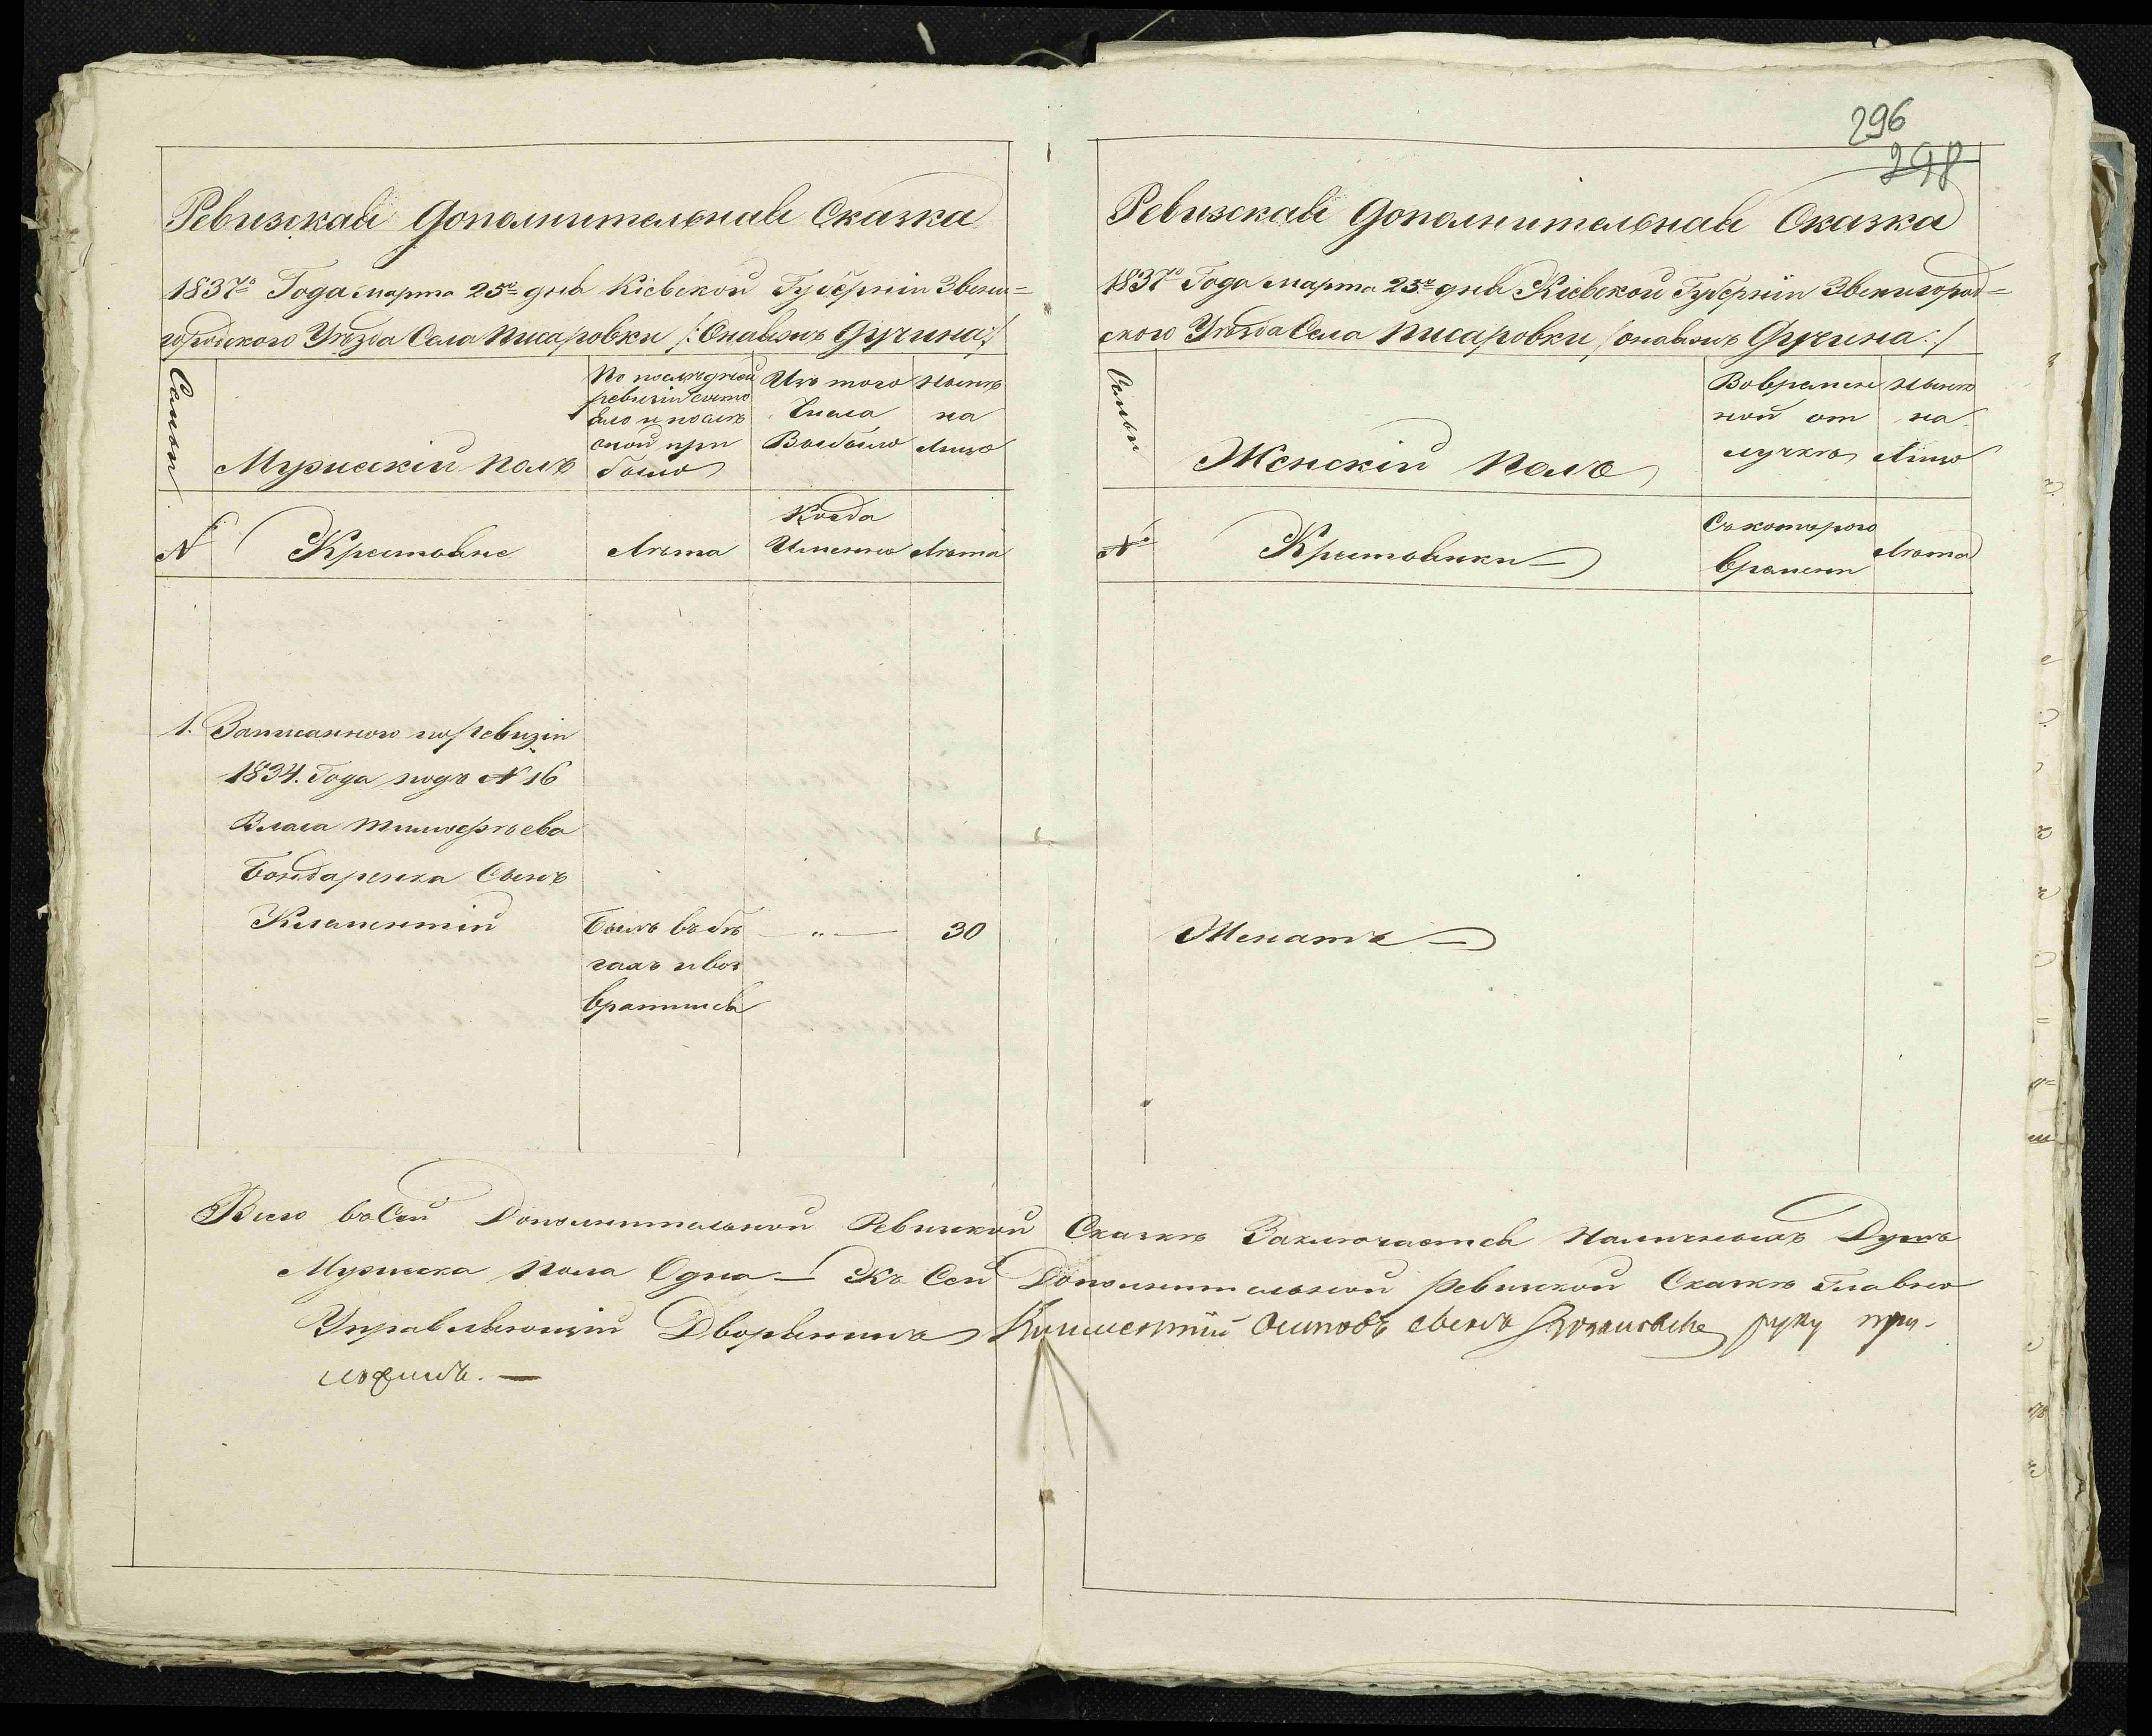 Ревизская Дополнительная Сказка
1837го Года марта 25го дня Кіевской Губерніи Звени=
городского Уѣзда Села Писаровки /:Онаяжъ Дучина:/
Семьи
Мужескій полъ
По послѣдней
ревизіи состо
яло и послѣ
оной при
было
Изъ того
Числа
Выбыло
Нынѣ
на
Лицо
№
Крестьяне
Лѣта
Когда
Именно
Лѣта
1. Записанного по ревизіи
1834. Года подъ № 16
Власа
Бондаренка Сынъ
Климентій
Былъ въ бѣ
гахъ и воз
вратился
— „ —
30
296
298
Ревизская Дополнительная Сказка
1837го Года марта 25го дня Кіевской Губерніи Звенигород=
ского Уѣзда Села Писаровки /онаяжъ Дучина:/
Семьи
Женскій Полъ
Во времен
ной от
лучкѣ
Нынѣ
на
Лицо
№
Крестьянки
Съ которого
времени
Лѣта
Женатъ
Всего въ Сей Дополнительной Ревизской Сказкѣ Заключается Наличныхъ Душъ
Мужеска Пола Одна — Къ Сей Дополнительной Ревизской Сказкѣ Главно
Управляющій Дворянинъ Климентій Осиповъ сынъ руку при-
ложилъ. —